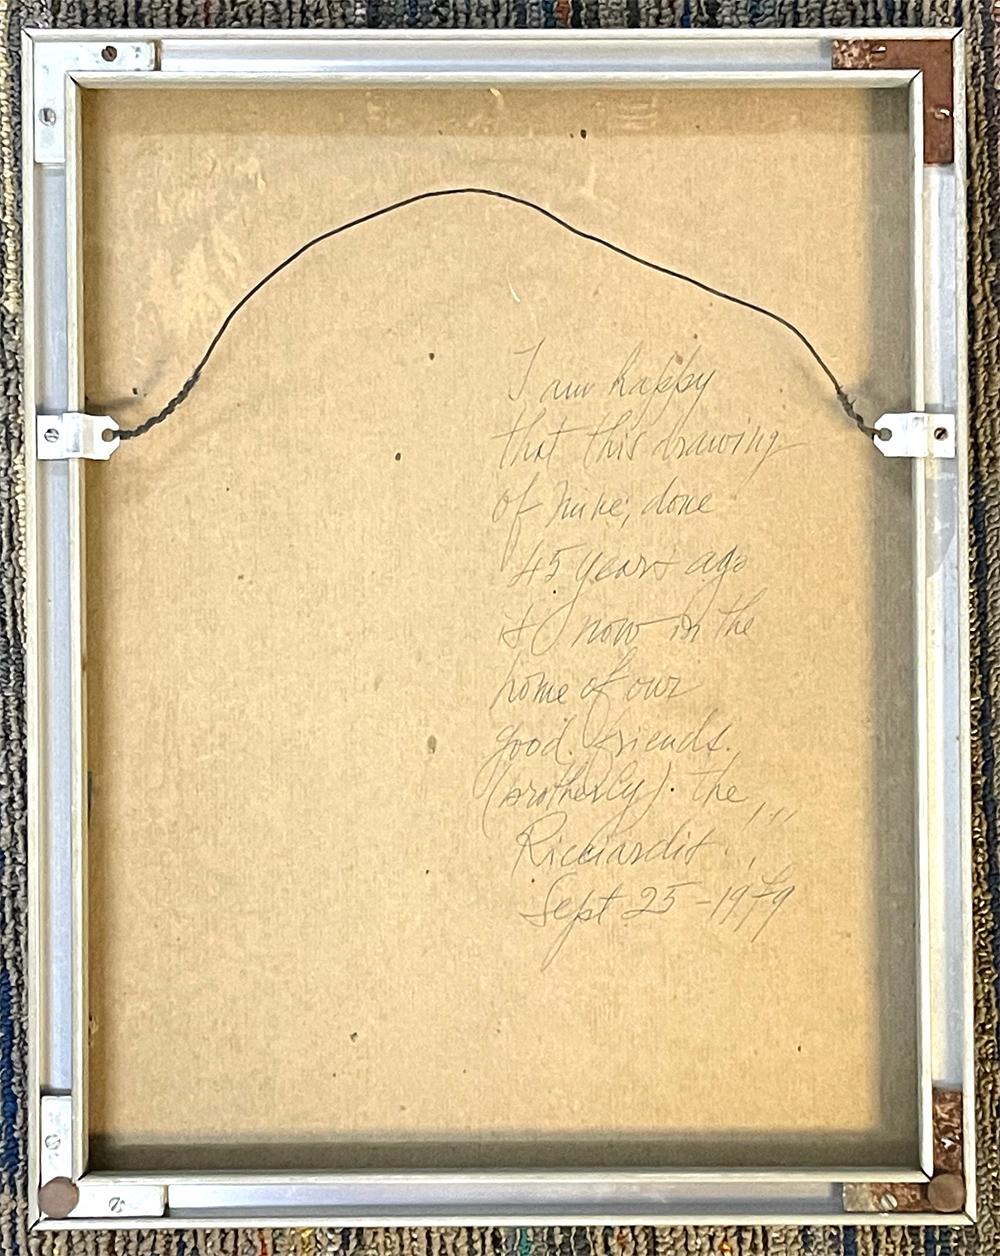 I am happy
that this drawing
of mine, done
45 years ago
is now in the
home of our
good friends.
(brotherly). the,,,
Ricciardis..,
Sept 25-1979